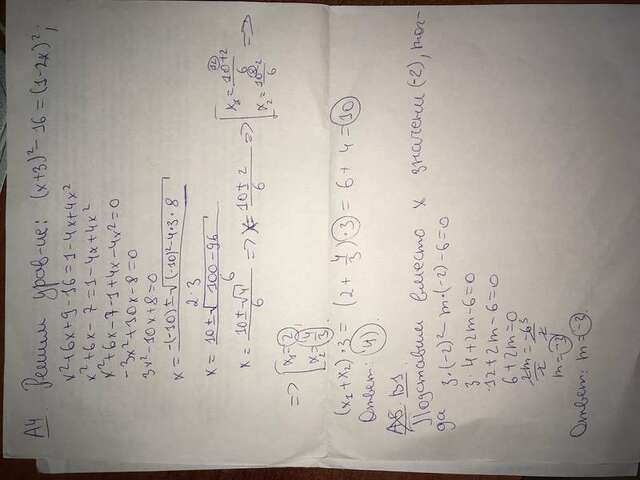 А4 Решим урав-ие: (x+3)²-16=(1-2x)²;
x²+6x+9-16=1-4x+4x²
x²+6x-7=1-4x+4x²
x²+6x-7-1+4x-4x²=0
-3x²+10x-8=0
3x²-10x+8=0
x=(-(-10)±√((-10)²-4·3·8))/(2·3)
x=(10±√(100-96))/6
x=(10±√4)/6 => x=(10±2)/6 => [x₁=(10+2)/6 12
x₂=(10-2)/6 8 =>
=> [x₁=2
x₂=4/3
(x₁+x₂)·3=(2+4/3)·3=6+4=10
Ответ: 4)
А5 В1.
Подставим вместо x значени (-2), тог-
да 3·(-2)²-m·(-2)-6=0
3·4+2m-6=0
12+2m-6=0
6+2m=0
2m/2=-6/2 3
m=-3
Ответ: m=-3.